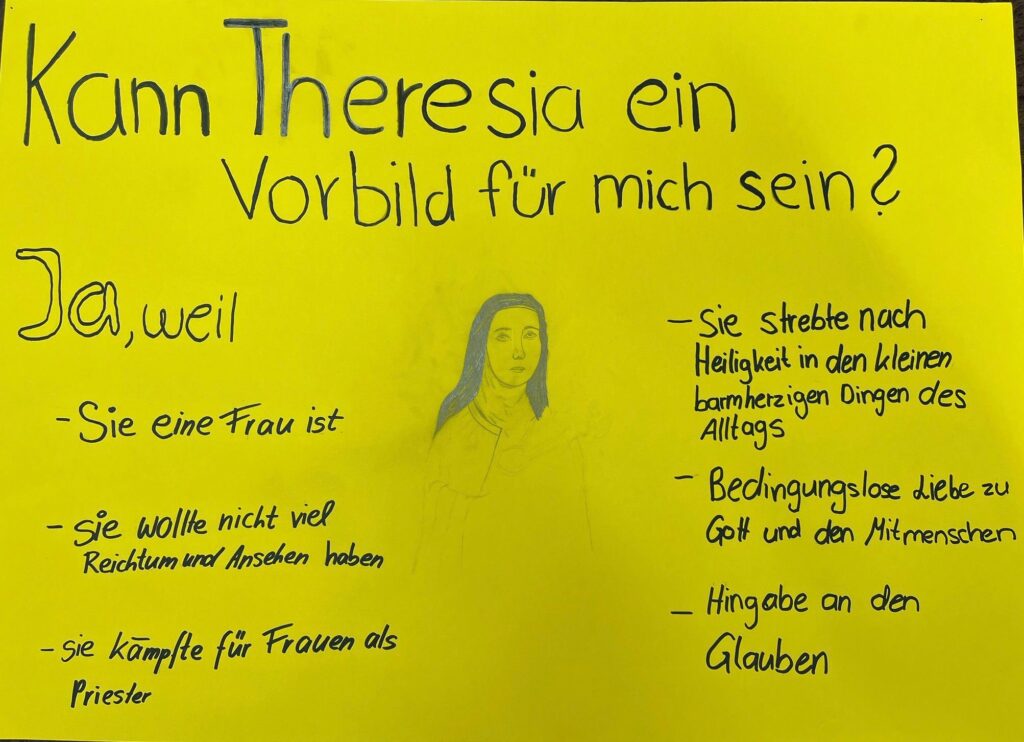 Kann Theresia ein
Vorbild für mich sein?
Ja, weil
- Sie eine Frau ist
- sie wollte nicht viel
Reichtum und Ansehen haben
- sie kämpfte für Frauen als
Priester
- Sie strebte nach
Heiligkeit in den kleinen
barmherzigen Dingen des
Alltags
- Bedingungslose Liebe zu
Gott und den Mitmenschen
- Hingabe an den
Glauben